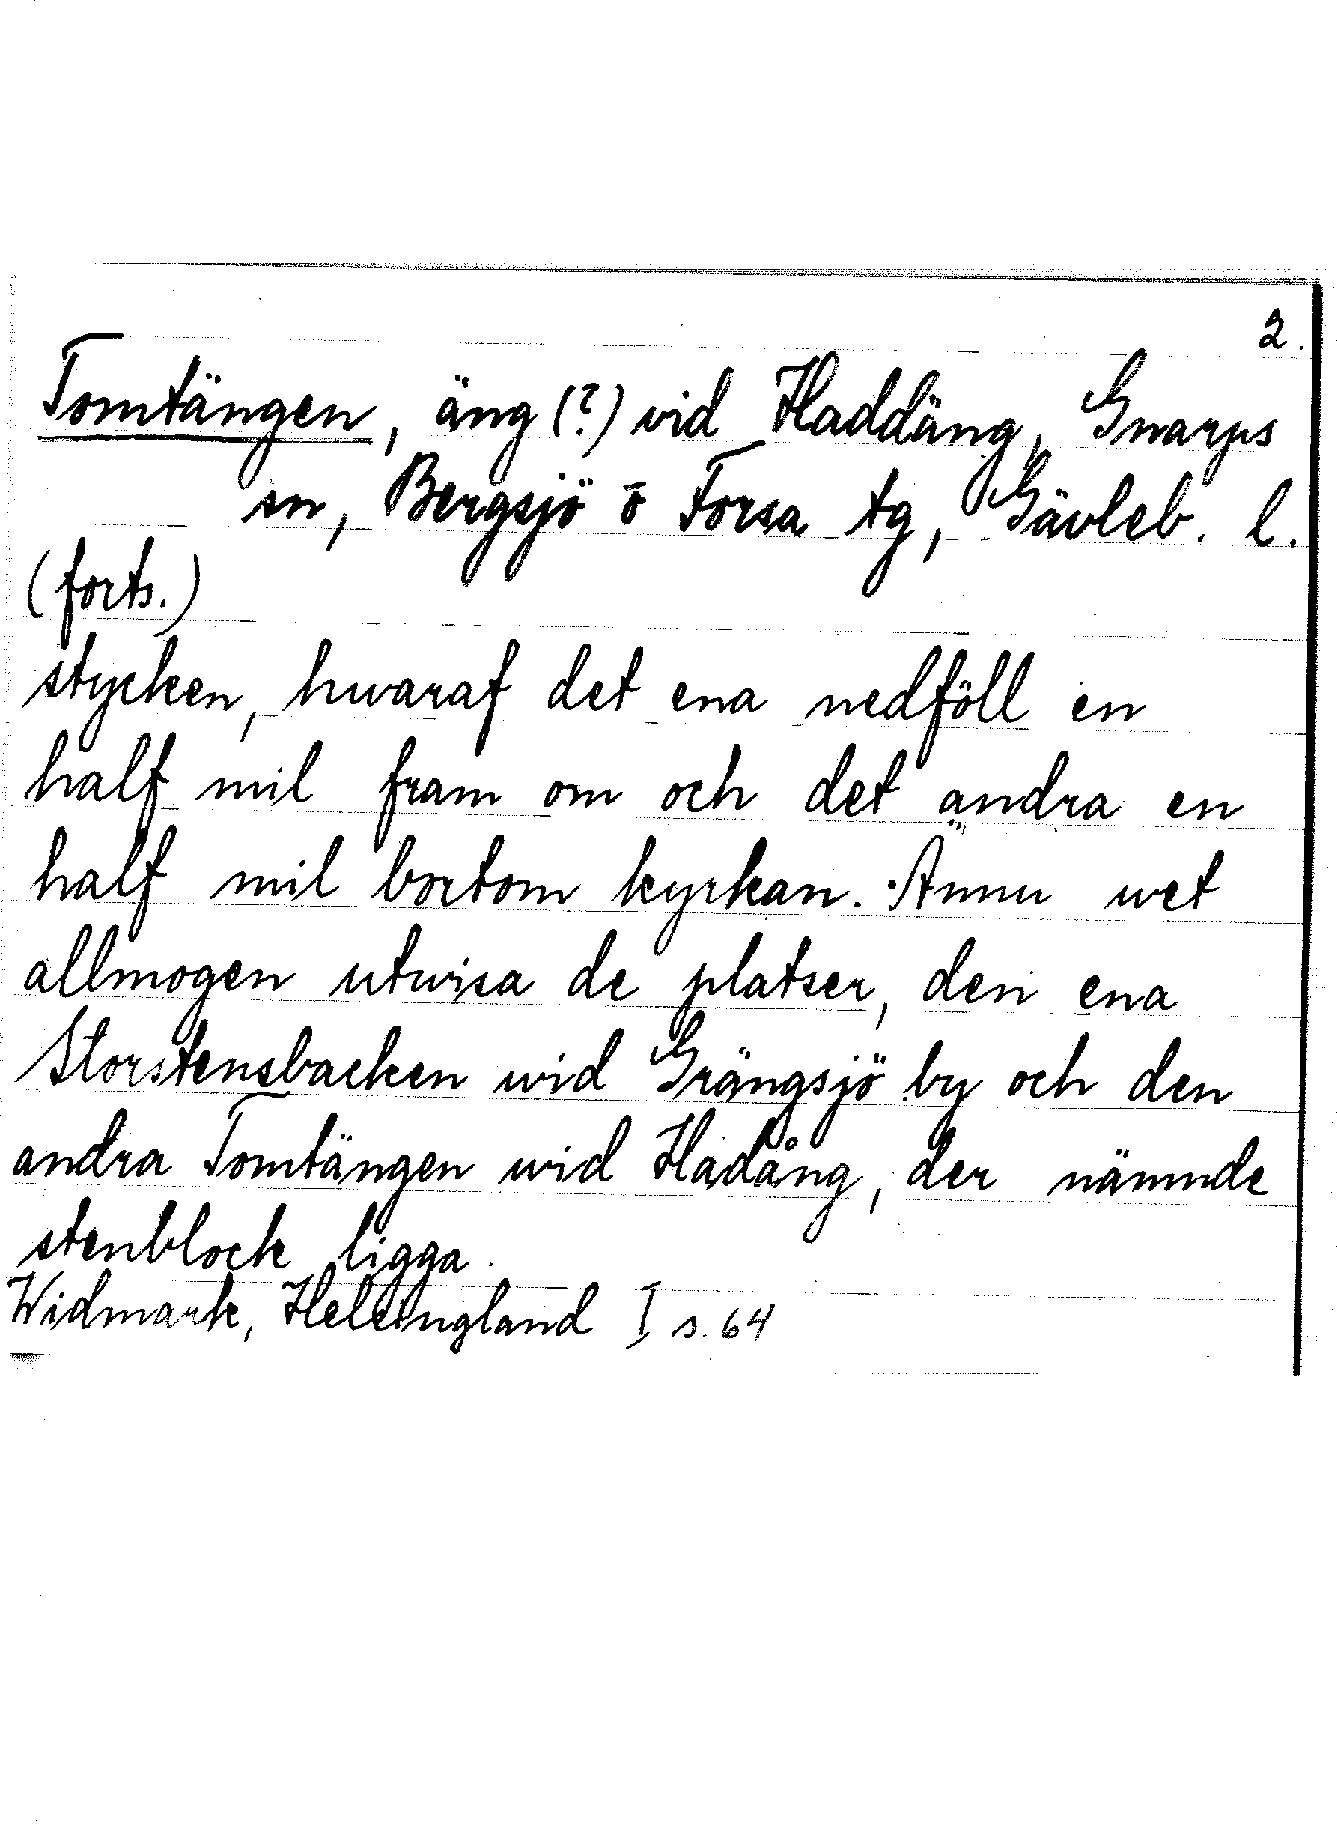 2.
Tomtängen, äng (?) vid Haddäng, Gnarps
sn, Bergsjö o Forsa tg, Gävleb. l.
(forts.)
stycken, hwaraf det ena nedföll en
half mil fram om och det andra en
half mil bortom kyrkan. Ännu wet
allmogen utwisa de platser, den ena
Storstensbacken wid Grängsjö by och den
andra Tomtängen wid Hadång, der nämnde
stenblock ligga.
Widmark, Helsingland I s. 64